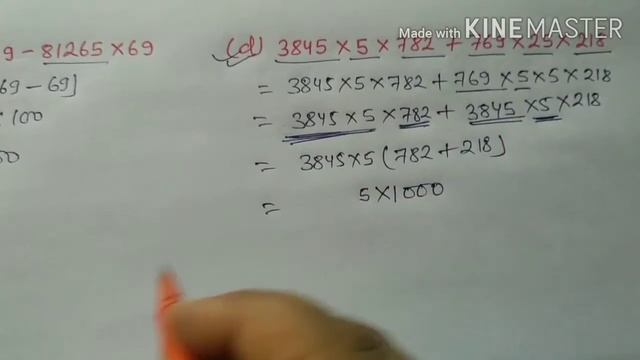 Made with KINEMASTER
9 - 81265 × 69
69 - 69]
× 100
00
(d) 3845 × 5 × 782 + 769 × 25 × 218
= 3845 × 5 × 782 + 769 × 5 × 5 × 218
= 3845 × 5 × 782 + 3845 × 5 × 218
= 3845 × 5 (782 + 218]
= 5 × 1000